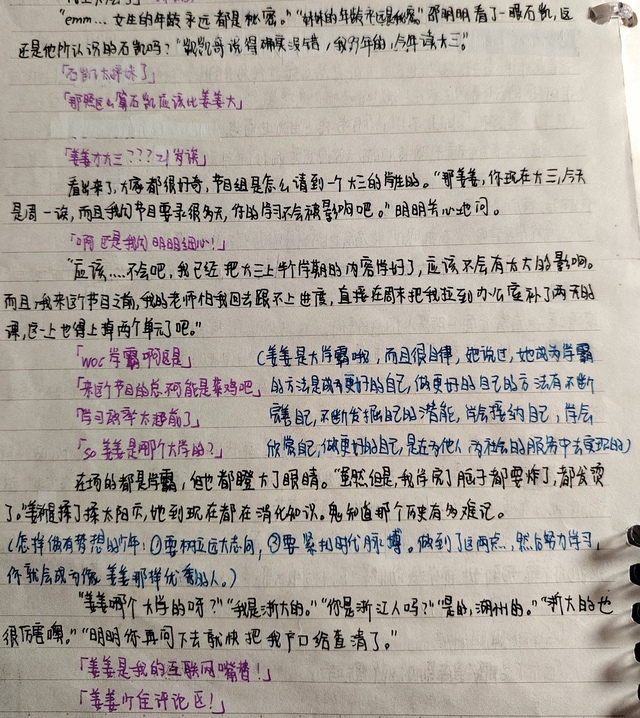 "emm... 女生的年龄永远都是秘密。""对对的年龄永远是秘密"邵明明看了一眼石凯,这
还是他所认识的石凯吗?"凯凯哥说得确实没错,我01年的,今年读大三。"
「石凯太暧昧了」
「那照这么算石凯应该比姜姜大」
「姜姜才大三???21岁诶」
看出来了,大家都很好奇,节目组是怎么请到一个大三的学生的。"那姜姜,你现在大三,今天
是周一诶,而且我们节目要录很多天,你的学习不会被影响吧。"明明关心地问。
「啊 还是我们明明细心!」
"应该....不会吧,我已经把大三上半个学期的内容学好了,应该不会有太大的影响。
而且,我来这个节目之前,我的老师怕我回去跟不上进度,直接在周末把我拉到办公室补了两天的
课,这一上也得上掉两个单元了吧。"
「woc学霸啊这是」 (姜姜是大学霸哦,而且很自律,她说过,她成为学霸
「来这个节目的总不可能是菜鸡吧」 的方法是成为更好的自己,做更好的自己的方法有不断
「学习效率太超前了」 完善自己,不断发掘自己的潜能,学会接纳自己,学会
「so 姜姜是哪个大学的?」 欣赏自己,做更好的自己,是在为他人为社会的服务中去实现的)
在场的都是学霸,但他都瞪大了眼睛。"虽然但是,我学完了脑子都要炸了,都发烫
了。"姜揉了揉太阳穴,她到现在都在消化知识。鬼知道那个历史有多难记。
(怎样做有梦想的少年:①要树立远大志向,②要紧扣时代脉搏。做到了这两点,然后努力学习,
你就会成为像姜姜那样优秀的人。)
"姜姜哪个大学的呀?""我是浙大的。""你是浙江人吗?""是的,湖州的。""浙大的也
很厉害噢。""明明你再问下去就快把我户口给查清了。"
「姜姜是我的互联网嘴替!」
「姜姜少住评论区!」